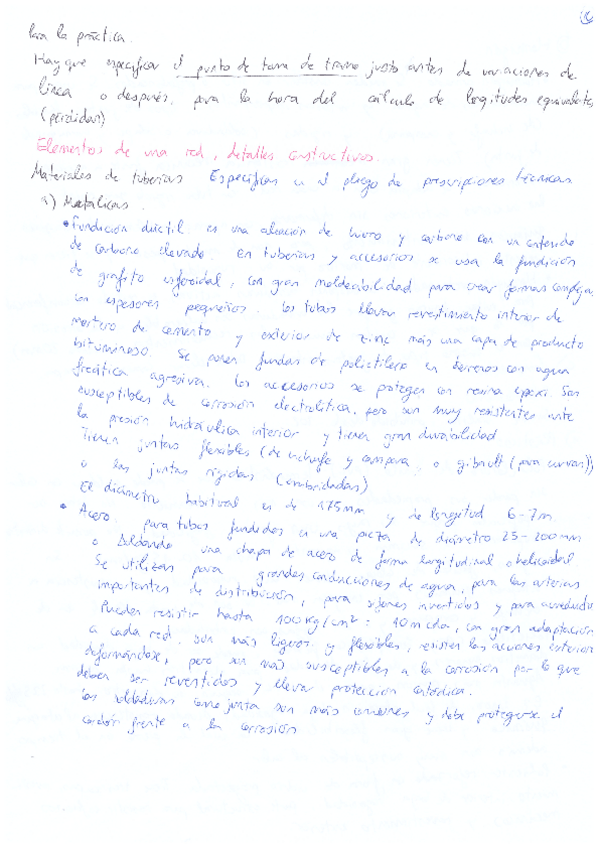 Para la práctica.
Hay que especificar el punto de toma de tramo justo antes de variaciones de
línea o después, para la hora del cálculo de longitudes equivalentes
(pérdidas)
Elementos de una red, detalles constructivos.
Materiales de tuberías Especificas en el pliego de prescripciones técnicas
a) Metálicas.
• Fundición dúctil: es una aleación de hierro y carbono con un contenido
de carbono elevado. En tuberías y accesorios se usa la fundición
de grafito esferoidal, con gran moldeabilidad para crear formas complejas
con espesores pequeños. Los tubos llevan revestimiento interior de
mortero de cemento y exterior de zinc más una capa de producto
bituminoso. Se ponen fundas de polietileno en terrenos con agua
freática agresiva. Los accesorios se protegen con resina epoxi. Son
susceptibles de corrosión electrolítica, pero son muy resistentes ante
la presión hidráulica interior y tienen gran durabilidad
Tienen juntas flexibles (de enchufe y campana, o gibault (para curvas))
o las juntas rígidas (embridadas)
El diámetro habitual es de 175mm y de longitud 6-7m.
• Acero: para tubos fundidos en una pieza de diámetro 25-200mm
o soldando una chapa de acero de forma longitudinal o helicoidal
Se utilizan para grandes conducciones de agua, para las arterias
importantes de distribución, para sifones invertidos y para acueductos
Pueden resistir hasta 100Kg/cm²: 10mcda, con gran adaptación
a cada red. son más ligeros y flexibles, resisten las acciones exteriores
deformándose, pero son más susceptibles a la corrosión por lo que
deben ser revestidos y llevar protección catódica.
Las soldaduras como junta son más comunes y debe protegerse el
cordón frente a la corrosión